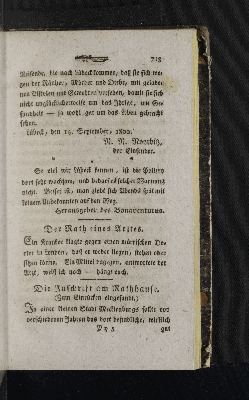 713
Reisende, die nach Lübeck kommen, daß sie sich we-
gen der Räuber, Mörder und Diebe, mit gelade-
nen Pistolen und Gewehren versehen, damit sie sich
nicht unglücklicherweise um das Ihrige, um Ge-
sundheit — ja wohl gar um das Leben gebracht
sehen.
Lübeck, den 19. September, 1802.
N. N.
der Einsender.
So viel wir Lübeck kennen, ist die Polizey
dort sehr wachsam, und bedarf es solcher Warnung
nicht. Besser ist, man giebt sich Abends spät mit
keinem Unbekannten auf den Weg.
Herausgeber des Bonaventurus.
Der Rath eines Arztes.
Ein Kranker klagte gegen einen mürrischen Dok-
tor in London, daß er weder liegen, stehen oder
sitzen könne. Ein Mittel dagegen, antwortete der
Arzt, weiß ich noch — hängt euch.
Die Inschrift am Rathhause.
(Zum Einrücken eingesandt.)
In einer kleinen Stadt Mecklenburgs sollte vor
verschiedenen Jahren das dort befindliche, wirklich
gut